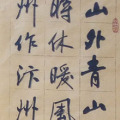 山外青山
時休暖風
州作汴州